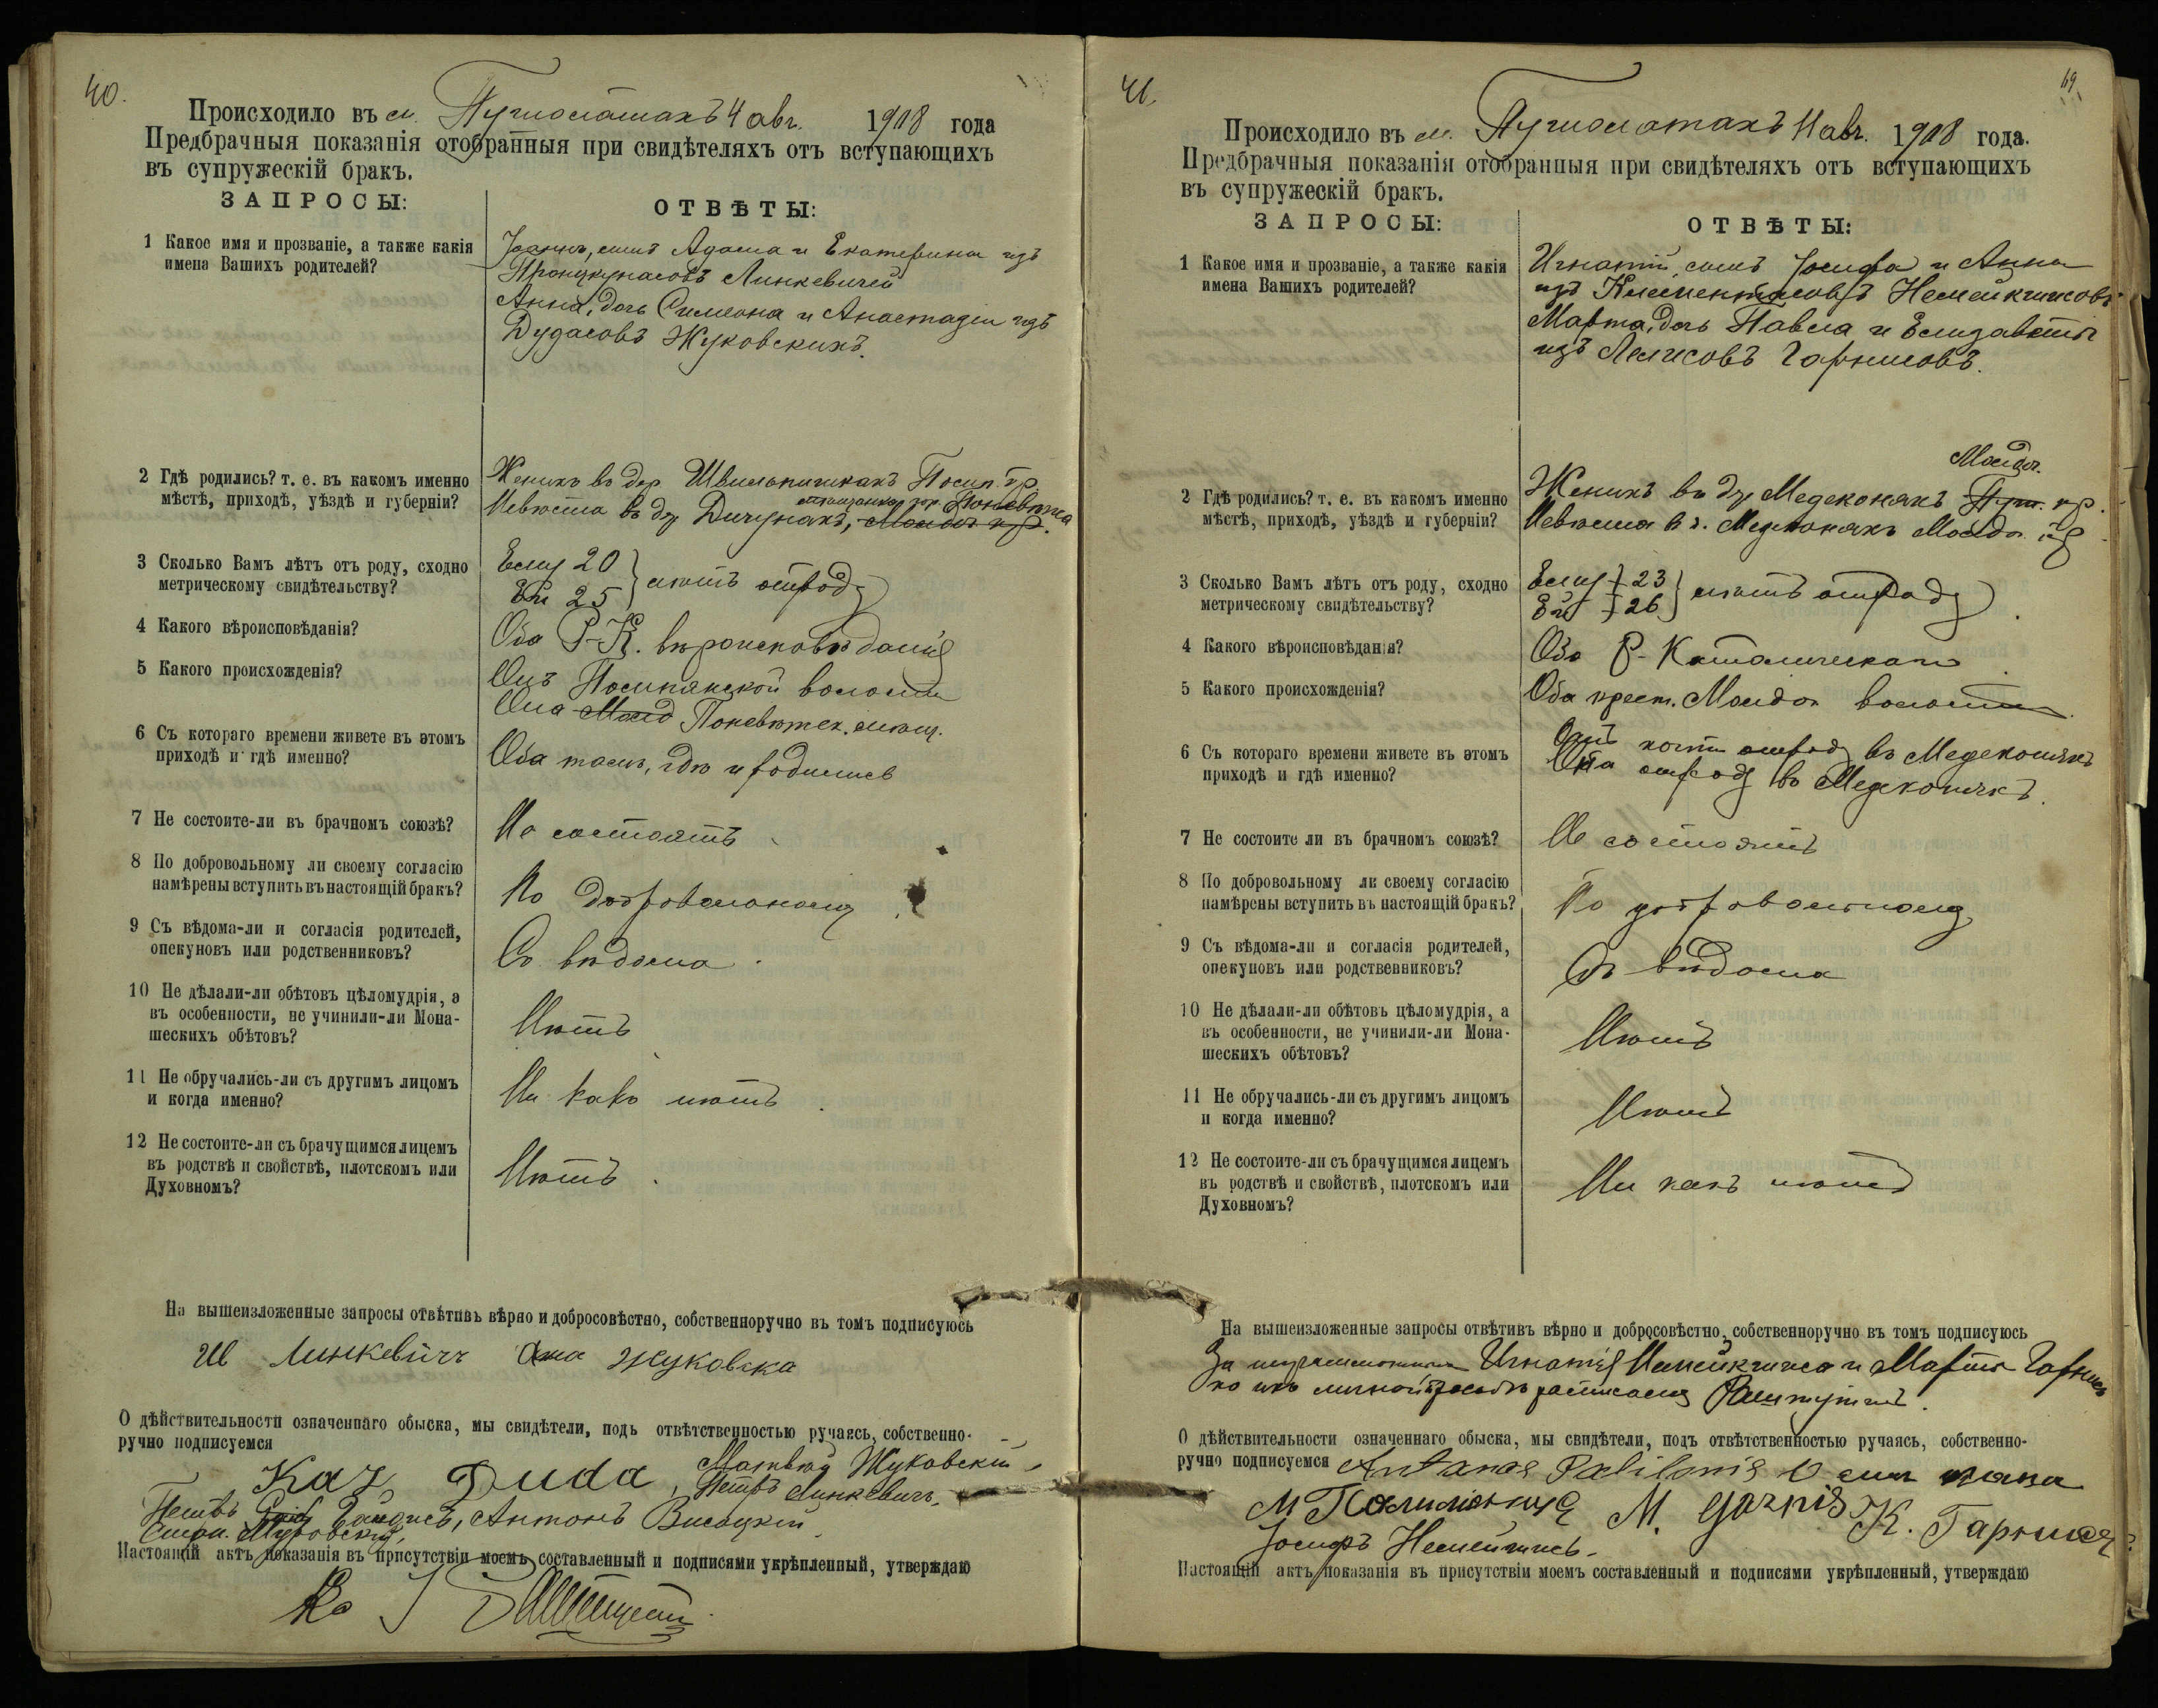 40.
Происходило въ м. Пушолатахъ 4 авг. 1908 года
Предбрачныя показанія отобранныя при свидѣтеляхъ отъ вступающихъ
въ супружескій бракъ.
ЗАПРОСЫ:
ОТВѢТЫ:
1 Какое имя и прозваніе, а также какія
имена Вашихъ родителей?
Іоаннъ, сынъ Адама и Екатерины изъ
Линкевичей
Анна, дочь Симеона и Анастазіи изъ
Дудасовъ Жуковскихъ.
2 Гдѣ родились? т. е. въ какомъ именно
мѣстѣ, приходѣ, уѣздѣ и губерніи?
Женихъ въ дер. пр.
Невѣста въ д. Поневѣжа
3 Сколько Вамъ лѣтъ отъ роду, сходно
метрическому свидѣтельству?
Ему 20
Ей 25 лѣтъ отроду
4 Какого вѣроисповѣданія?
Оба Р-К. вѣроисповѣданія
5 Какого происхожденія?
Онъ волости
Она Поневѣжск. мѣщ.
6 Съ котораго времени живете въ этомъ
приходѣ и гдѣ именно?
Оба тамъ, гдѣ и родились
7 Не состоите-ли въ брачномъ союзѣ?
Не состоятъ
8 По добровольному ли своему согласію
намѣрены вступить въ настоящій бракъ?
По добровольному
9 Съ вѣдома-ли и согласія родителей,
опекуновъ или родственниковъ?
Съ вѣдома.
10 Не дѣлали-ли обѣтовъ цѣломудрія, а
въ особенности, не учинили-ли Мона-
шескихъ обѣтовъ?
Нѣтъ
11 Не обручались-ли съ другимъ лицомъ
и когда именно?
Ни какъ нѣтъ.
12 Не состоите-ли съ брачущимся лицемъ
въ родствѣ и свойствѣ, плотскомъ или
Духовномъ?
Нѣтъ.
На вышеизложенные запросы отвѣтивъ вѣрно и добросовѣстно, собственноручно въ томъ подписуюсь
Линкевичъ Жуковска
О дѣйствительности означеннаго обыска, мы свидѣтели, подъ отвѣтственностью ручаясь, собственно-
ручно подписуемся
Kaz. Duda, Матвѣй Жуковскій,
Петръ Линкевичъ,
Петръ Антонъ Висоцкій
Настоящій актъ показанія въ присутствіи моемъ составленный и подписями укрѣпленный, утверждаю
41.
49
Происходило въ м. Пушолатахъ 11 авг. 1908 года.
Предбрачныя показанія отобранныя при свидѣтеляхъ отъ вступающихъ
въ супружескій бракъ.
ЗАПРОСЫ:
ОТВѢТЫ:
1 Какое имя и прозваніе, а также какія
имена Вашихъ родителей?
Игнатій, сынъ Іосифа и Анны
изъ
Марта, дочь Павла и Елизаветы
изъ Гарнисовъ.
2 Гдѣ родились? т. е. въ какомъ именно
мѣстѣ, приходѣ, уѣздѣ и губерніи?
Женихъ въ д. Медеконяхъ пр.
Невѣста въ д. Медеконяхъ
3 Сколько Вамъ лѣтъ отъ роду, сходно
метрическому свидѣтельству?
Ему 23
Ей 26 лѣтъ отъ роду
4 Какого вѣроисповѣданія?
Оба Р-Католическаго
5 Какого происхожденія?
Оба крест. волости
6 Съ котораго времени живете въ этомъ
приходѣ и гдѣ именно?
отроду въ Медеконяхъ
Она отроду въ Медеконяхъ.
7 Не состоите ли въ брачномъ союзѣ?
Не состоятъ
8 По добровольному ли своему согласію
намѣрены вступить въ настоящій бракъ?
По добровольному
9 Съ вѣдома-ли и согласія родителей,
опекуновъ или родственниковъ?
Съ вѣдома
10 Не дѣлали-ли обѣтовъ цѣломудрія, а
въ особенности, не учинили-ли Мона-
шескихъ обѣтовъ?
Нѣтъ
11 Не обручались-ли съ другимъ лицомъ
и когда именно?
Нѣтъ
12 Не состоите-ли съ брачущимся лицемъ
въ родствѣ и свойствѣ, плотскомъ или
Духовномъ?
Ни какъ нѣтъ
На вышеизложенные запросы отвѣтивъ вѣрно и добросовѣстно, собственноручно въ томъ подписуюсь
За неграмотныхъ Игнатія и Марты
по ихъ личной просьбѣ
О дѣйствительности означеннаго обыска, мы свидѣтели, подъ отвѣтственностью ручаясь, собственно-
ручно подписуемся Antanas
M. Garnis К.
Іосифъ
Настоящій актъ показанія въ присутствіи моемъ составленный и подписями укрѣпленный, утверждаю